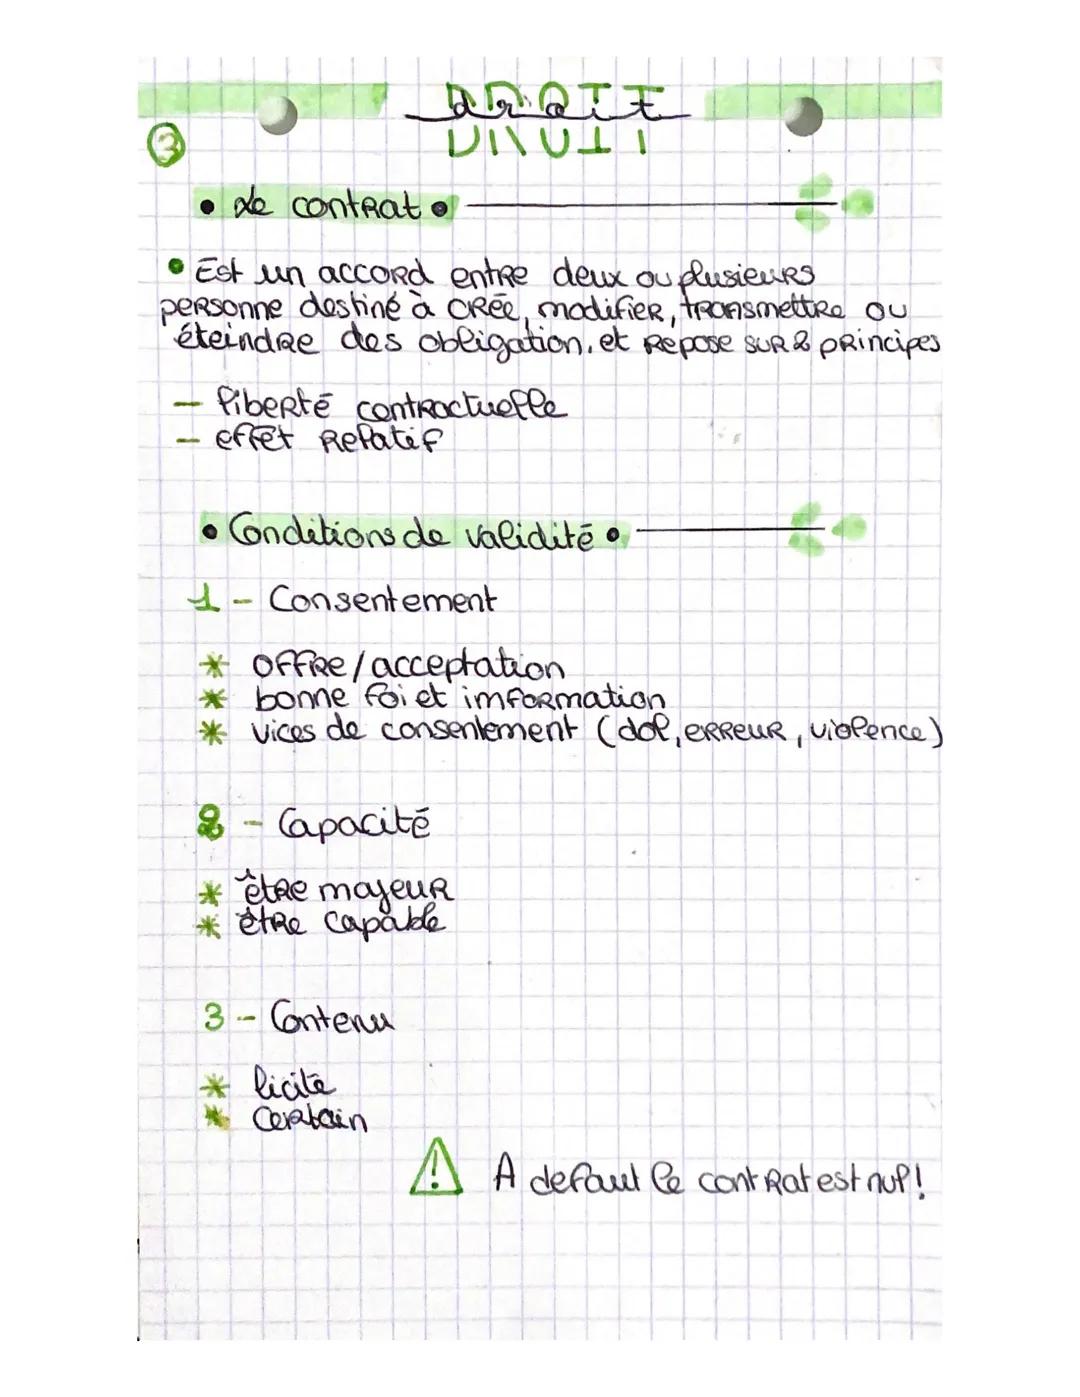 DROIT
droit
3
• Le contrat •
• Est un accord entre deux ou plusieurs
personne destiné à crée, modifier, transmettre ou
éteindre des obligation, et repose sur 2 principes
- liberté contractuelle
- effet relatif
• Conditions de validité •
1 - Consentement
* offre/acceptation
* bonne foi et imformation
* vices de consentement (dol, erreur, violence)
2 - Capacité
* être majeur
* être capable
3 - Contenu
* licite
* certain
⚠ A defaut le contrat est nul !